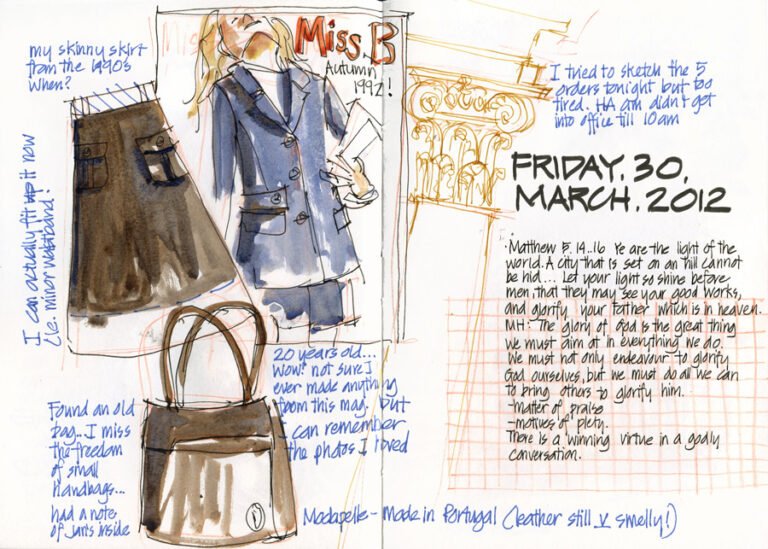 my skinny skirt
from the 1990s
when?
I can actually fit it now
(ie. minor waistband!
Miss. B
Autumn
1992!
I tried to sketch the 5
orders tonight but too
tired. HA am didn't get
into office till 10am
FRIDAY. 30.
MARCH. 2012
· Matthew 5. 14..16 Ye are the light of the
world. A city that is set on an hill cannot
be hid... Let your light so shine before
men, that they may see your good works,
and glorify your Father which is in heaven.
MH: The glory of God is the great thing
we must aim at in everything we do.
We must not only endeavour to glorify
God ourselves, but we must do all we can
to bring others to glorify him.
-matter of praise
-motives of piety.
There is a winning virtue in a godly
conversation.
20 years old...
Wow! not sure I
ever made anything
from this mag. but
I can remember
the photos I loved
Found an old
bag.. I miss
the freedom
of small
handbags...
had a note
of Jan's inside
Madapelle - made in Portugal (leather still v smelly!)